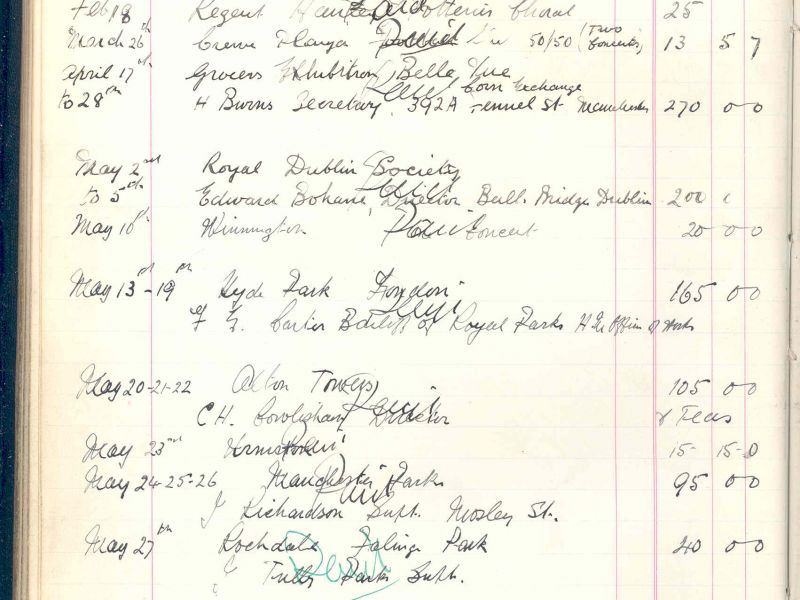 Feb 18 Regent Choral 25
March 26th 50/50 (Two Concerts) 13 5 7
April 17th Grocers Exhibition, Belle Vue Paid
to 28th H Burns Secretary. 392A Corn Exchange Fennel St Manchester 270 0 0
May 2nd Royal Dublin Society Paid
to 5th Edward Bohane, Director Balls Bridge Dublin 200 0
May 10th Winnington Paid Concert 20 0 0
May 13th - 19th Hyde Park London Paid 165 0 0
Bailiff of Royal Parks H M Office of Works
May 20-21-22 Alton Towers Paid 105 0 0
C H. Director & Teas
May 23rd Urmston Paid 15- 15-0
May 24-25-26 Manchester Parks Paid 95 0 0
J Richardson Supt. Mosley St.
May 27th Rochdale Falinge Park Paid 40 0 0
Parks Supt.